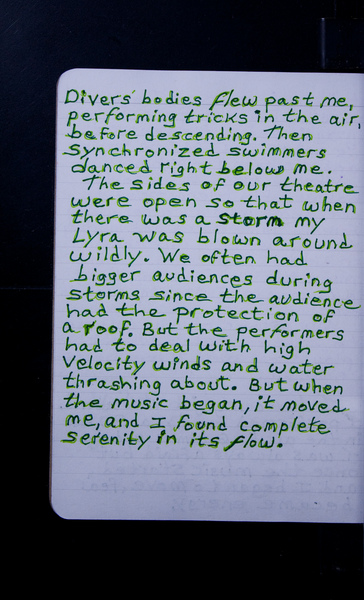 Divers' bodies flew past me,
performing tricks in the air,
before descending. Then
synchronized swimmers
danced right below me.
The sides of our theatre
were open so that when
there was a storm my
Lyra was blown around
wildly. We often had
bigger audiences during
storms since the audience
had the protection of
a roof. But the performers
had to deal with high
velocity winds and water
thrashing about. But when
the music began, it moved
me, and I found complete
serenity in its flow.